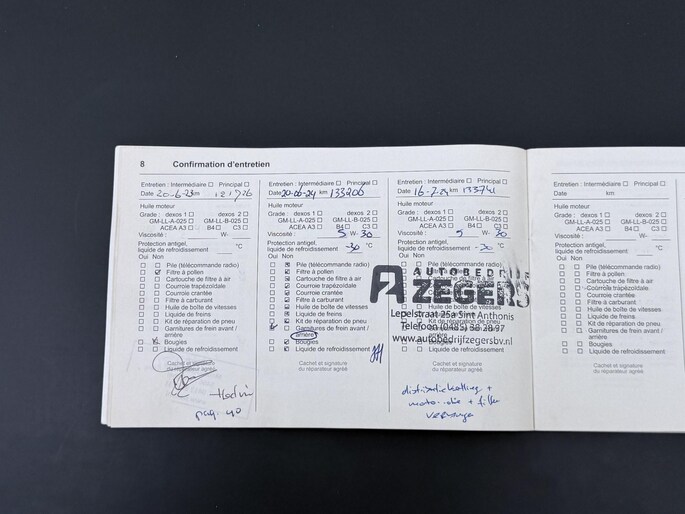 8 Confirmation d'entretien
Entretien : Intermédiaire Principal
Date 20-6-23 km 121726
Huile moteur
Grade : dexos 1 dexos 2
GM-LL-A-025 GM-LL-B-025
ACEA A3 B4 C3
Viscosité : W-
Protection antigel,
liquide de refroidissement °C
Oui Non
Pile (télécommande radio)
Filtre à pollen
Cartouche de filtre à air
Courroie trapézoïdale
Courroie crantée
Filtre à carburant
Huile de boîte de vitesses
Liquide de freins
Kit de réparation de pneu
Garnitures de frein avant /
arrière
Bougies
Liquide de refroidissement
Cachet et signature
du réparateur agréé
pag 40
Entretien : Intermédiaire Principal
Date 20-06-24 km 133206
Huile moteur
Grade : dexos 1 dexos 2
GM-LL-A-025 GM-LL-B-025
ACEA A3 B4 C3
Viscosité : 5 W- 30
Protection antigel,
liquide de refroidissement -30 °C
Oui Non
Pile (télécommande radio)
Filtre à pollen
Cartouche de filtre à air
Courroie trapézoïdale
Courroie crantée
Filtre à carburant
Huile de boîte de vitesses
Liquide de freins
Kit de réparation de pneu
Garnitures de frein avant /
arrière
Bougies
Liquide de refroidissement
Cachet et signature
du réparateur agréé
Entretien : Intermédiaire Principal
Date 16-7-24 km 133741
Huile moteur
Grade : dexos 1 dexos 2
GM-LL-A-025 GM-LL-B-025
ACEA A3 B4 C3
Viscosité : 5 W- 30
Protection antigel,
liquide de refroidissement -30 °C
Oui Non
AUTOBEDRIJF
ZEGERS
Lepelstraat 25a Sint Anthonis
Telefoon (0485) 38 28 97
www.autobedrijfzegersbv.nl
Liquide de refroidissement
Cachet et signature
du réparateur agréé
distributieketting +
motorolie + filter
vervangen
Entretien : Intermédiaire Principal
Date km
Huile moteur
Grade : dexos 1 dexos 2
GM-LL-A-025 GM-LL-B-025
ACEA A3 B4 C3
Viscosité : W-
Protection antigel,
liquide de refroidissement °C
Oui Non
Pile (télécommande radio)
Filtre à pollen
Cartouche de filtre à air
Courroie trapézoïdale
Courroie crantée
Filtre à carburant
Huile de boîte de vitesses
Liquide de freins
Kit de réparation de pneu
Garnitures de frein avant /
arrière
Bougies
Liquide de refroidissement
Cachet et signature
du réparateur agréé